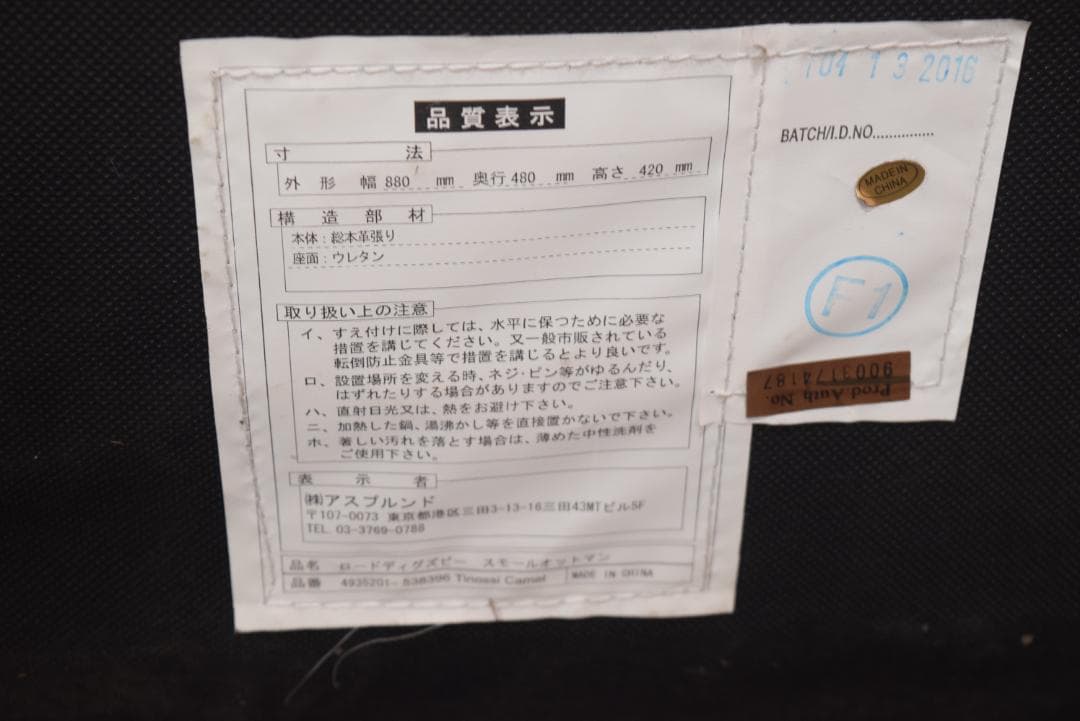 品質表示
寸法
外形 幅 880 mm 奥行 480 mm 高さ 420 mm
構造部材
本体：総本革張り
座面：ウレタン
取り扱い上の注意
イ、すえ付けに際しては、水平に保つために必要な
措置を講じてください。又一般市販されている
転倒防止金具等で措置を講じるとより良いです。
ロ、設置場所を変える時、ネジ・ピン等がゆるんだり、
はずれたりする場合がありますのでご注意下さい。
ハ、直射日光又は、熱をお避け下さい。
ニ、加熱した鍋、湯沸かし等を直接置かないで下さい。
ホ、著しい汚れを落とす場合は、薄めた中性洗剤を
ご使用下さい。
表示者
㈱アスプルンド
〒107-0073 東京都港区三田3-13-16三田43MTビル5F
TEL 03-3769-0788
品名 ロードディグズビー スモールオットマン
品番 4935201- 838396 Tinossi Camel MADE IN CHINA
04 13 2016
BATCH/I.D.NO...............
MADE IN
CHINA
F1
Prod Auth No.
9003174187